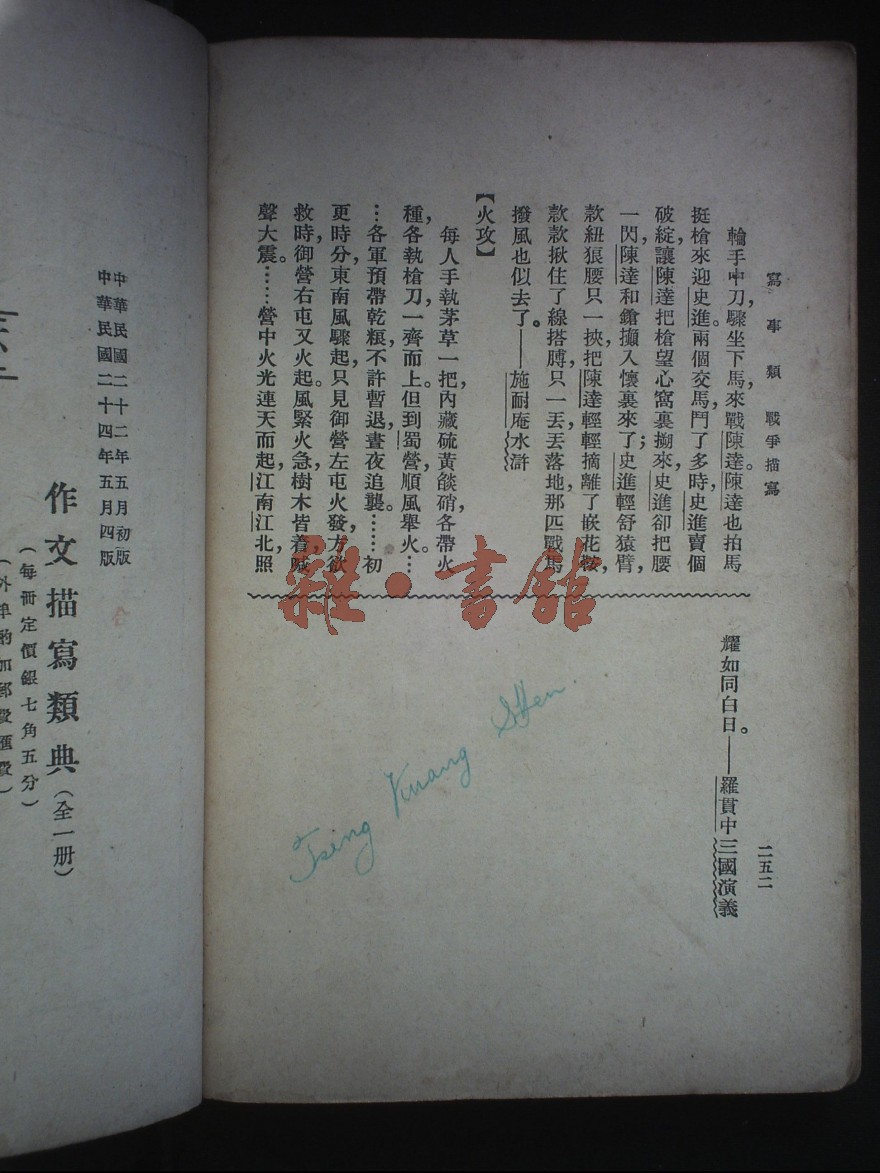 寫事類 戰爭描寫
輪手中刀，驟坐下馬，來戰陳達。陳達也拍馬
挺槍來迎史進。兩個交馬，鬥了多時，史進賣個
破綻，讓陳達把槍望心窩裏搠來，史進卻把腰
一閃，陳達和鎗攧入懷裏來了；史進輕舒猿臂，
款紐狼腰，只一挾，把陳達輕輕摘離了嵌花鞍，
款款揪住了線搭膊，只一丟，丟落地，那匹戰馬
撥風也似去了。——施耐庵水滸
【火攻】
每人手執茅草一把，內藏硫黃燄硝，各帶火
種，各執槍刀，一齊而上。但到蜀營，順風舉火。…
…各軍預帶乾糇，不許暫退，晝夜追襲。……初
更時分，東南風驟起，只見御營左屯火發，方欲
救時，御營右屯又火起。風緊火急，樹木皆着，喊
聲大震。……營中火光連天而起，江南江北，照
耀如同白日。——羅貫中三國演義
二五二
Tsing Kwang Shen
中華民國二十二年五月初版
中華民國二十四年五月四版
作文描寫類典（全一册）
（每冊定價銀七角五分）
（外埠酌加郵費匯費）
雜·書館